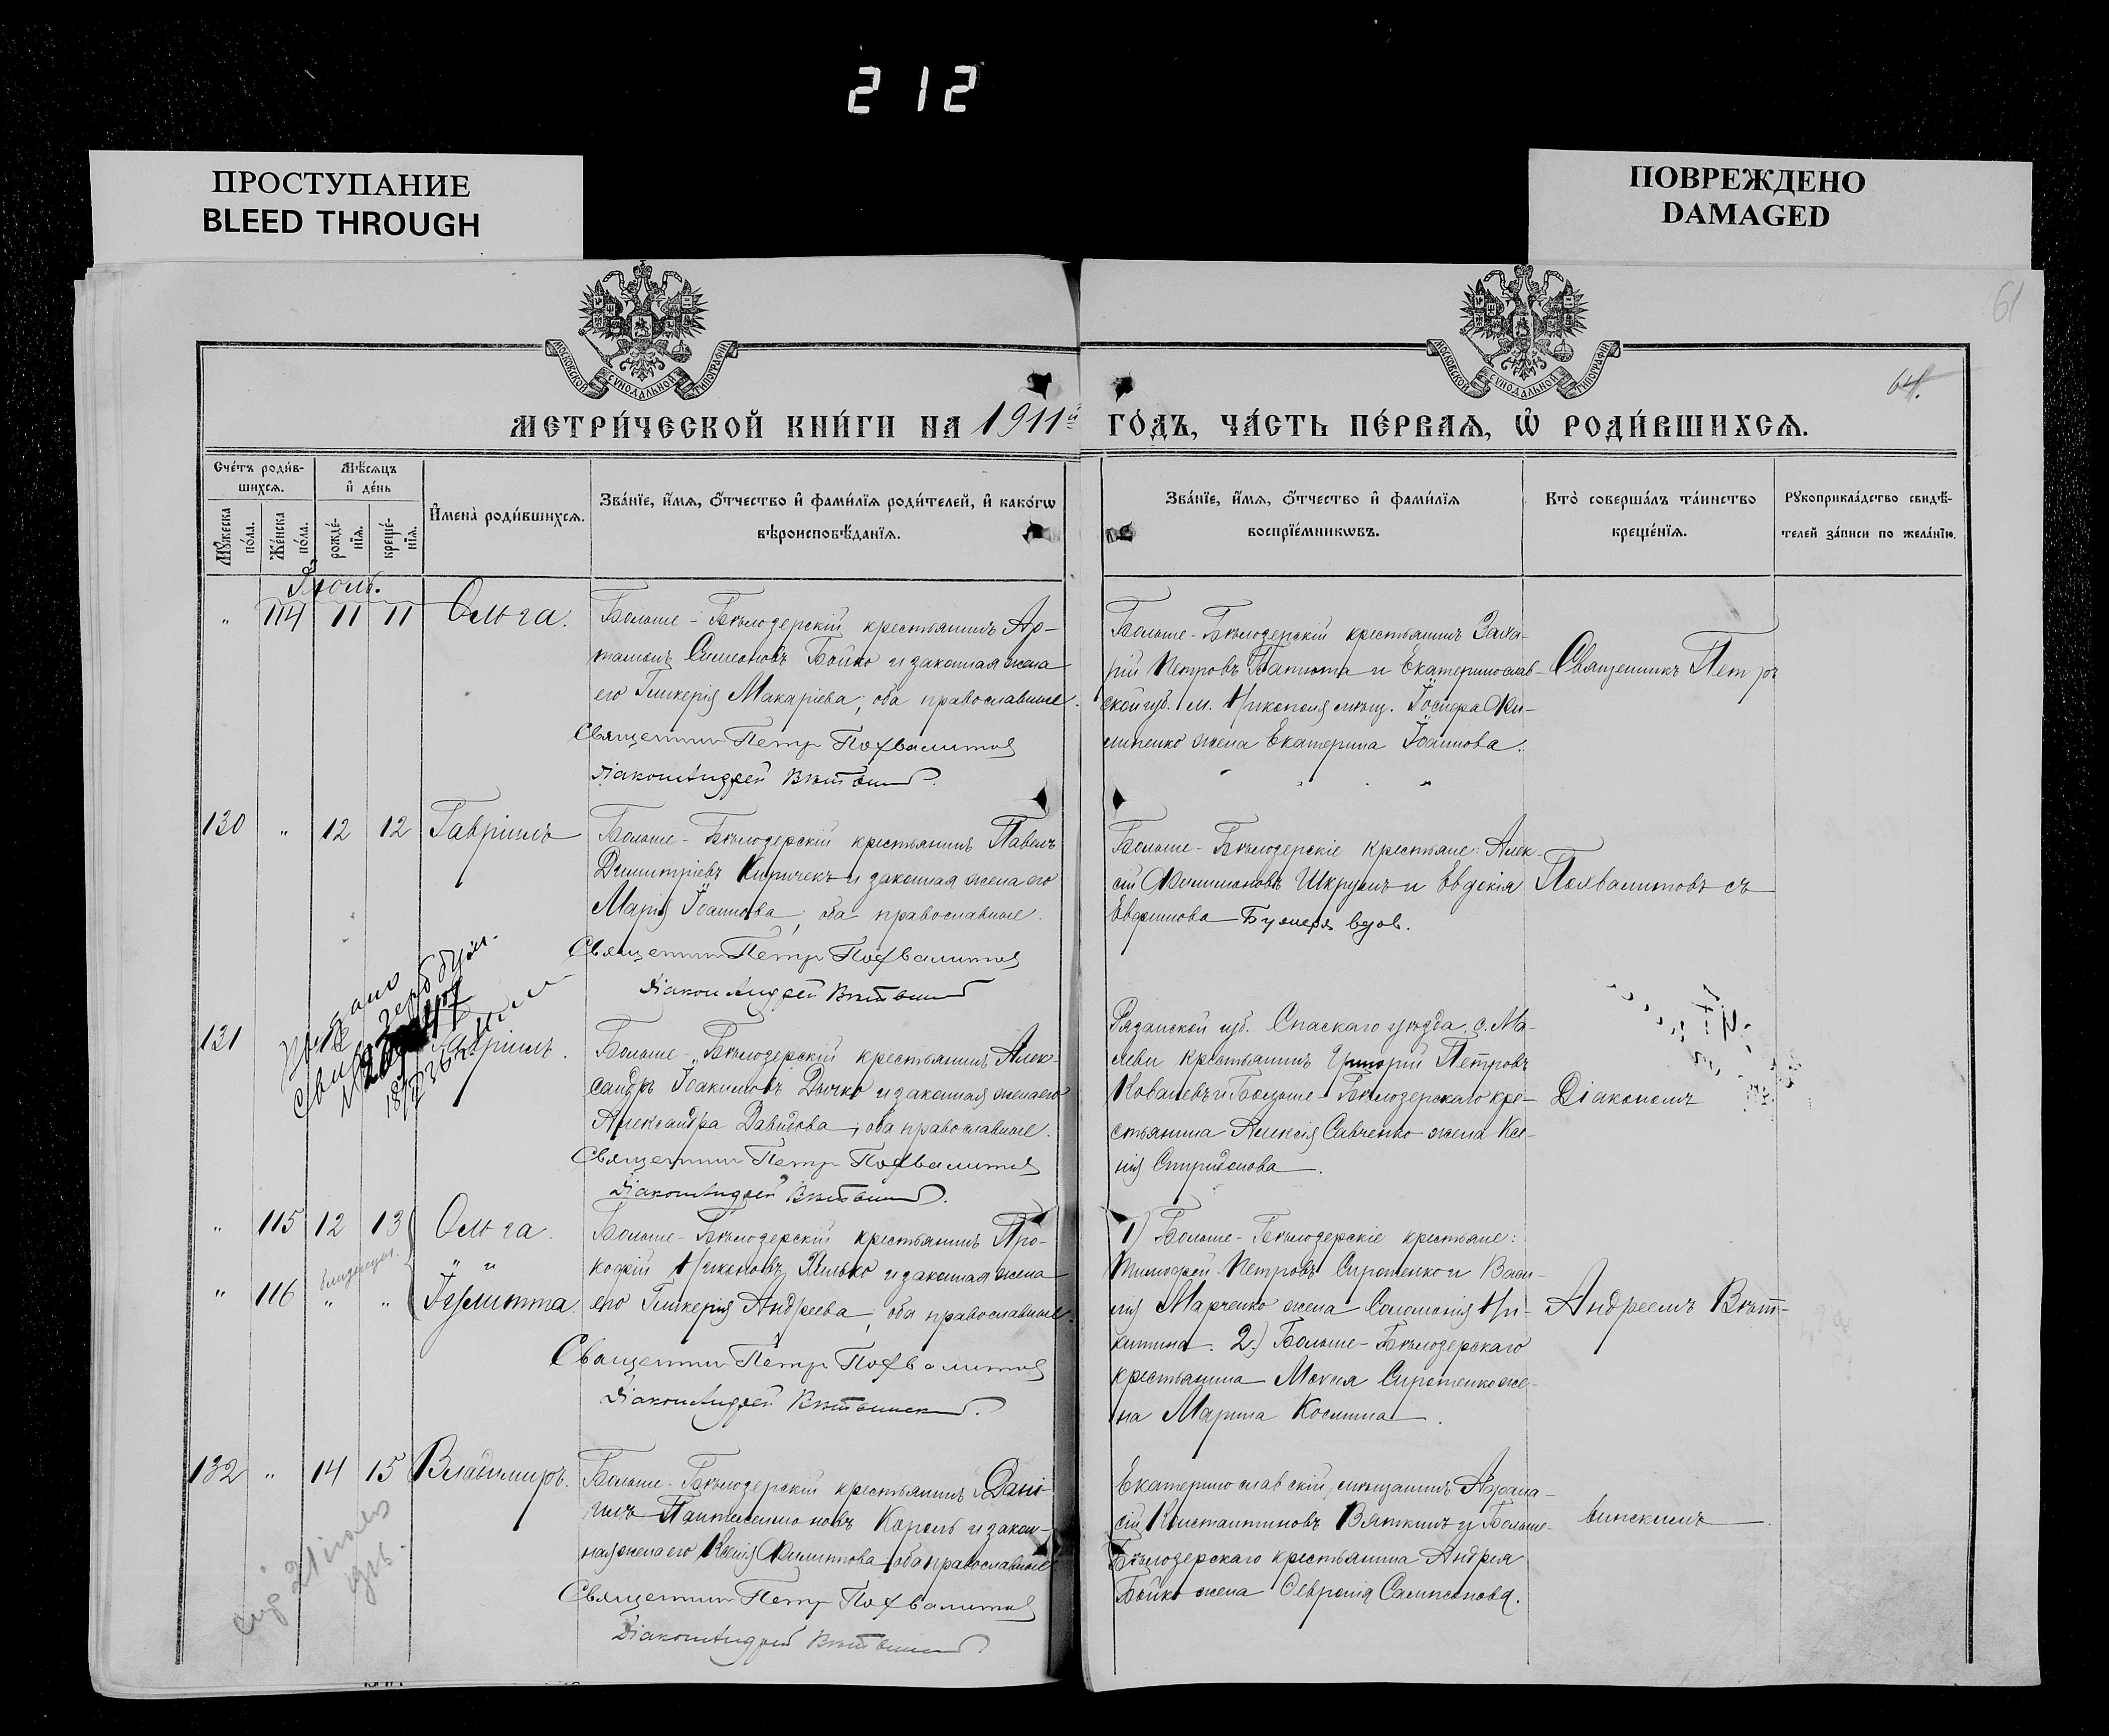 212
ПРОСТУПАНИЕ
BLEED THROUGH
ПОВРЕЖДЕНО
DAMAGED
61
64
МОСКОВСКОЙ СѴНОДАЛЬНОЙ ТИПОГРАФІИ
МОСКОВСКОЙ СѴНОДАЛЬНОЙ ТИПОГРАФІИ
МЕТРИ́ЧЕСКОЙ КНИ́ГИ НА 1911й ГО́ДЪ, ЧА́СТЬ ПЕ́РВАѦ, Ѡ҆ РОДИ́ВШИХСѦ.
Сче́тъ роди́в-
шихсѧ.
Мѣ́сѧцъ
и҆ де́нь
Мꙋ́жеска
по́ла.
Же́нска
по́ла.
рожде́-
нїѧ.
креще́-
нїѧ.
И҆мена̀ роди́вшихсѧ.
Зва́нїе, и҆́мѧ, ѻ҆́тчество и҆ фами́лїѧ роди́телей, и҆ како́гѡ
вѣроисповѣ́данїѧ.
Зва́нїе, и҆́мѧ, ѻ҆́тчество и҆ фами́лїѧ
воспрїе́мникѡвъ.
Кто̀ соверша́лъ та́инство
креще́нїѧ.
Рꙋкоприкла́дство свидѣ́-
телей за́писи по жела́нїю.
Іюль.
" 114 11 11 Ольга.
Больше-Бѣлозерскій крестьянинъ Ар-
тамонъ Симеоновъ Бойко и законная жена
его Гликерія Макаріева, оба православные.
Священник Петр Похвалитов
Діакон Андрей Вѣтвин
Больше-Бѣлозерскій крестьянинъ Заха-
рій Петровъ и Екатеринослав-
ской губ. м. Никополя мѣщ. Іосифа Фи-
липенко жена Екатерина Іоаннова.
Священникъ Петръ
130 " 12 12 Гавріилъ
Больше-Бѣлозерскій крестьянинъ Павелъ
Димитріевъ Киричекъ и законная жена его
Марія Іоаннова, оба православные.
Священник Петр Похвалитов
Діакон Андрей Вѣтвин
Больше-Бѣлозерскіе крестьяне: Алек-
сій Филимоновъ Шкрумъ и Евдокія
Евфимова вдов.
Похвалитовъ съ
131
Выдано
Гавріилъ.
Больше-Бѣлозерскій крестьянинъ Алек-
сандръ Іоакимовъ Дычко и законная жена его
Александра Давидова, оба православные.
Священник Петр Похвалитов
Діакон Андрей Вѣтвин
Рязанской губ. Спаскаго уѣзда, с. Ма-
леви крестьянинъ Григорій Петровъ
Ковалевъ и Больше-Бѣлозерскаго кре-
стьянина Алексія Савченко жена Ксе-
нія Спиридонова.
Діакономъ
" 115 12 13 Ольга.
близнецы.
" 116 " " Іулитта.
Больше-Бѣлозерскій крестьянинъ Про-
кофій Никоновъ Хилько и законная жена
его Гликерія Андреева, оба православные.
Священник Петр Похвалитов
Діакон Андрей Вѣтвинск
1) Больше-Бѣлозерскіе крестьяне:
Тимофей Петровъ Сиротенко и Васи-
лія Марченко жена Соломонія Ни-
китина. 2) Больше-Бѣлозерскаго
крестьянина Мокія Сиротенко же-
на Марина Космина.
Андреемъ Вѣт-
132 " 14 15 Владимиръ.
Больше-Бѣлозерскій крестьянинъ Дані-
илъ Пантелеимоновъ Король и закон-
ная жена его Ксенія Филиппова, оба православные
Священник Петр Похвалитов
Діакон Андрей Вѣтвин
Екатеринославскій мѣщанинъ Афана-
сій Константиновъ Вяткинъ и Больше-
Бѣлозерскаго крестьянина Андрея
Бойко жена Февронія Сампсонова.
винскимъ